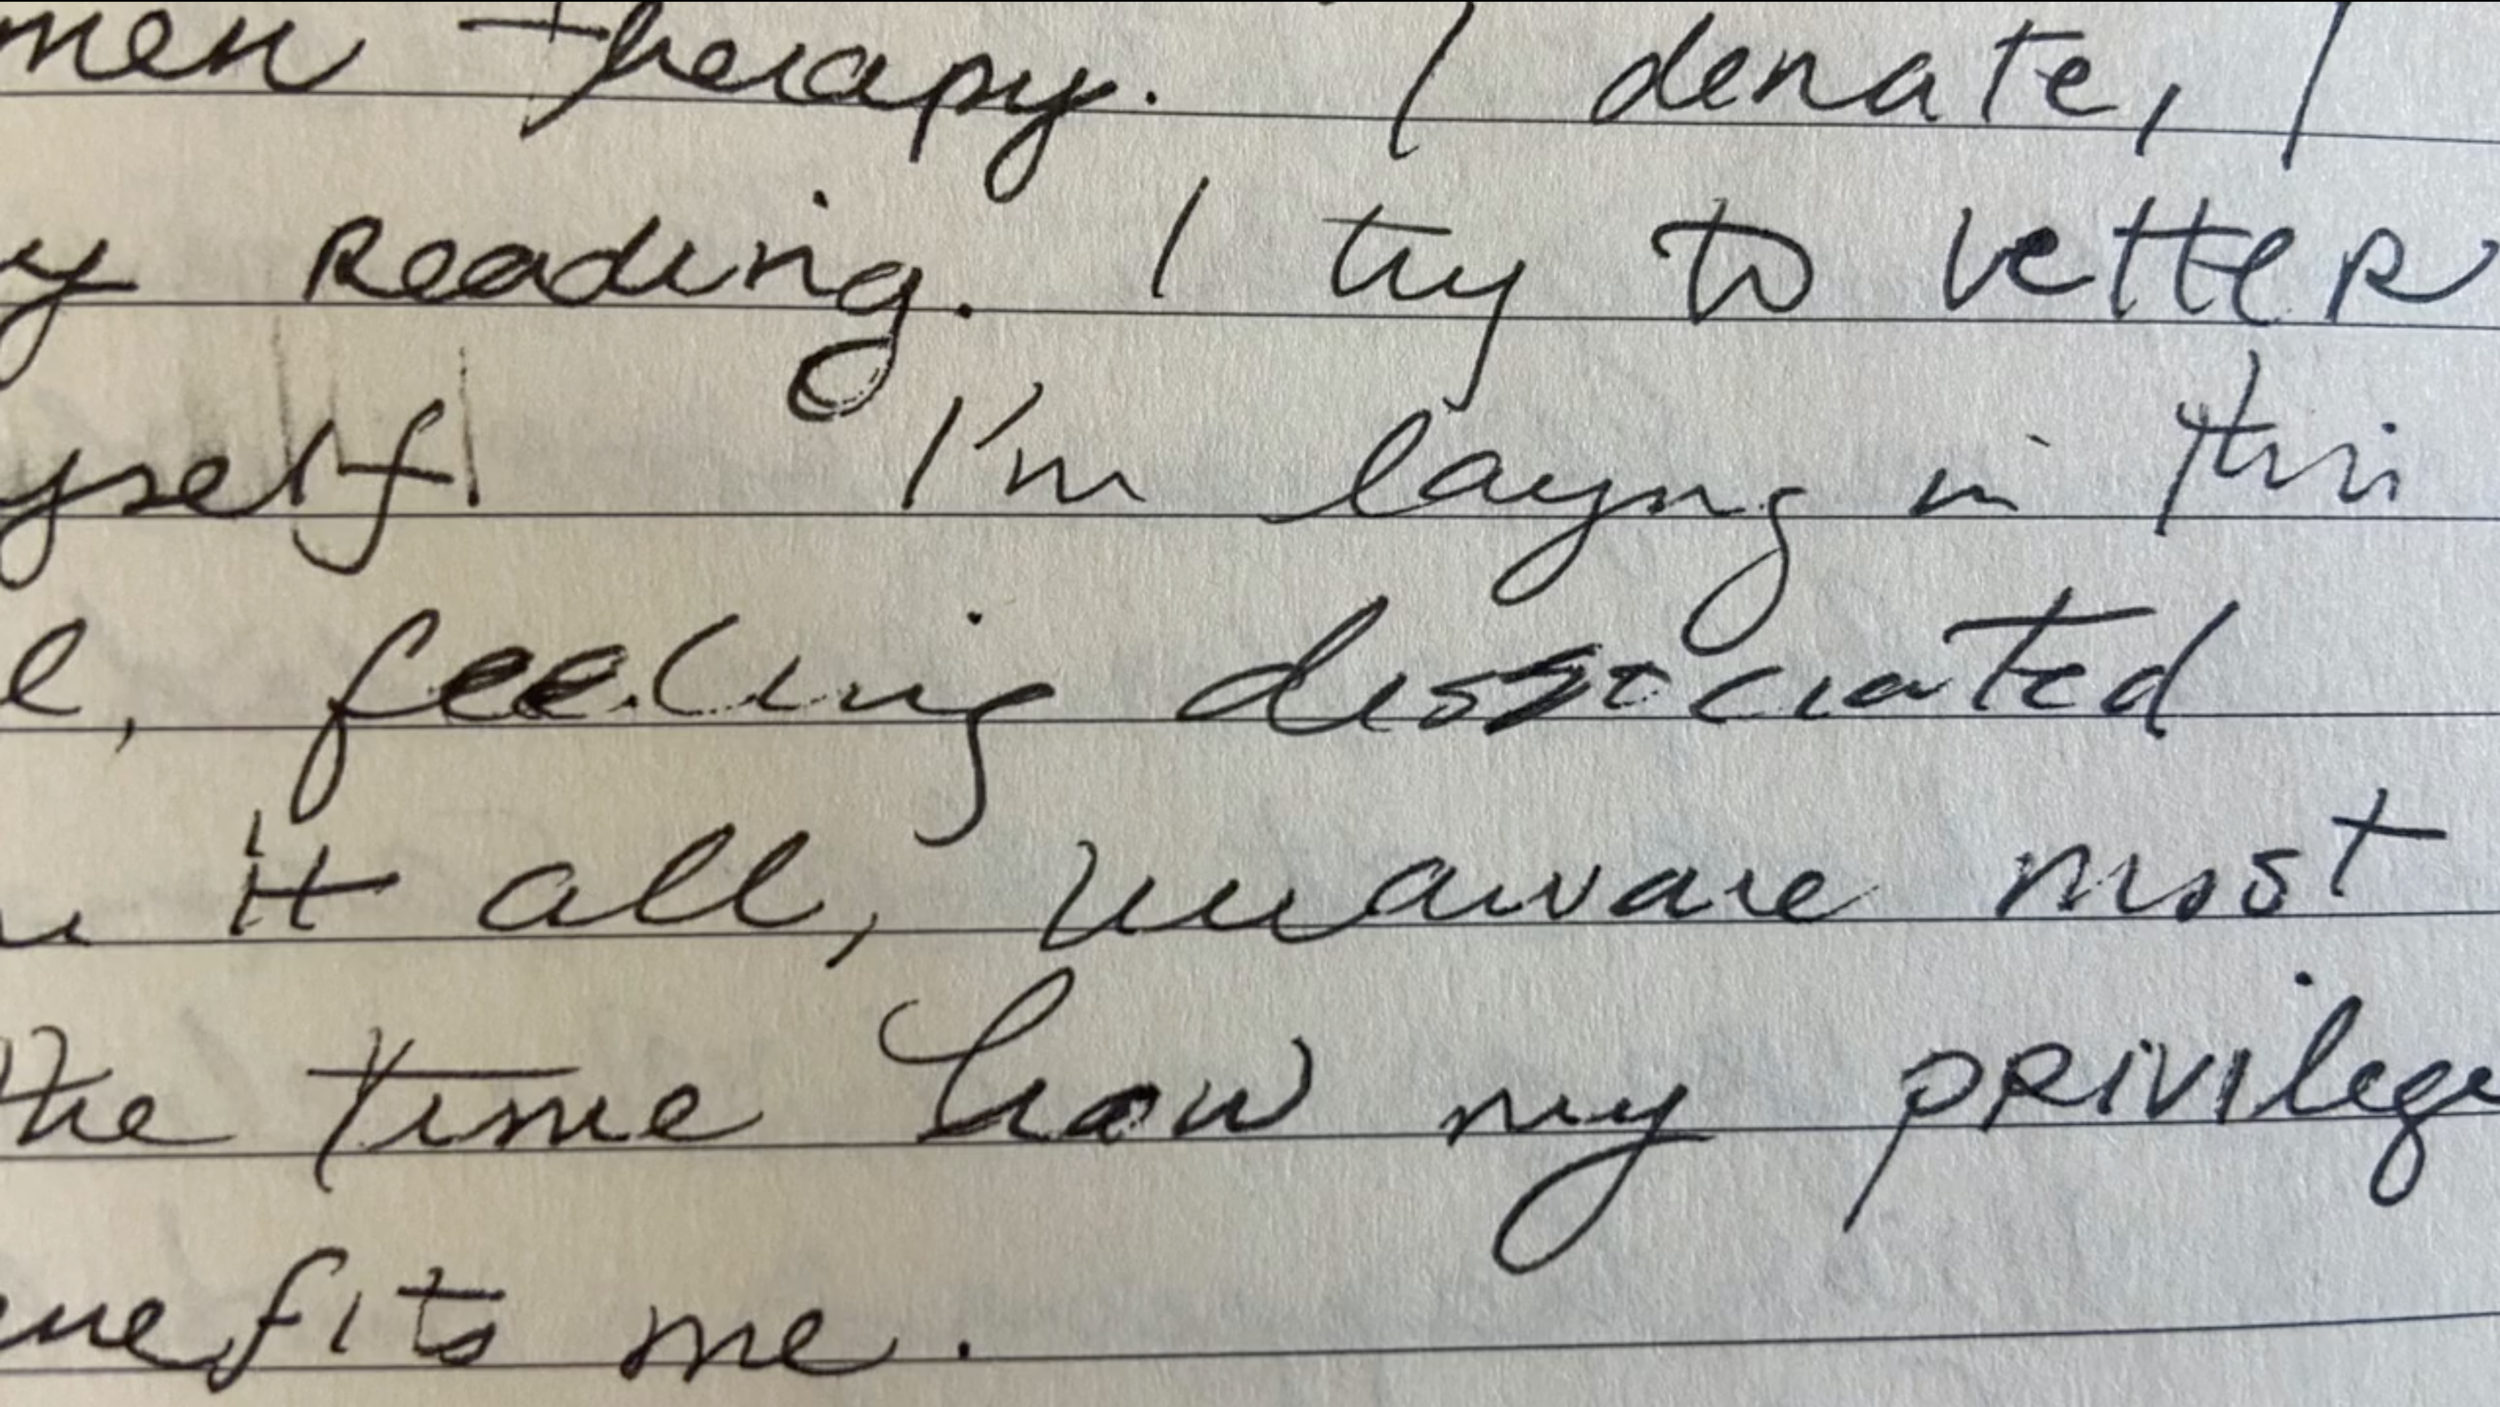 men therapy. I denate, I
y Reading. I try to vetter
yself. I'm layng in this
l, feeling dissociated
it all, unaware most
the time how my privilege
enefits me.